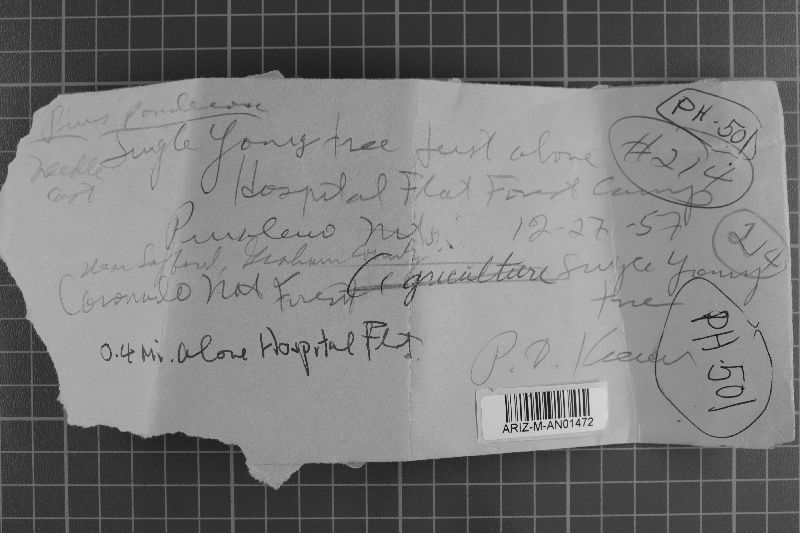 Pinus ponderosa
PH-501
Needle cast
Single Young tree just above
#214
Hospital Flat Forest Camp
Pinaleno Mts. 12-27-57
214
near Safford, Graham County
Coronado Nat Forest (Agriculture Single Young
tree
0.4 Mi. above Hospital Flat.
P. D. Keener
PH.501
ARIZ-M-AN01472